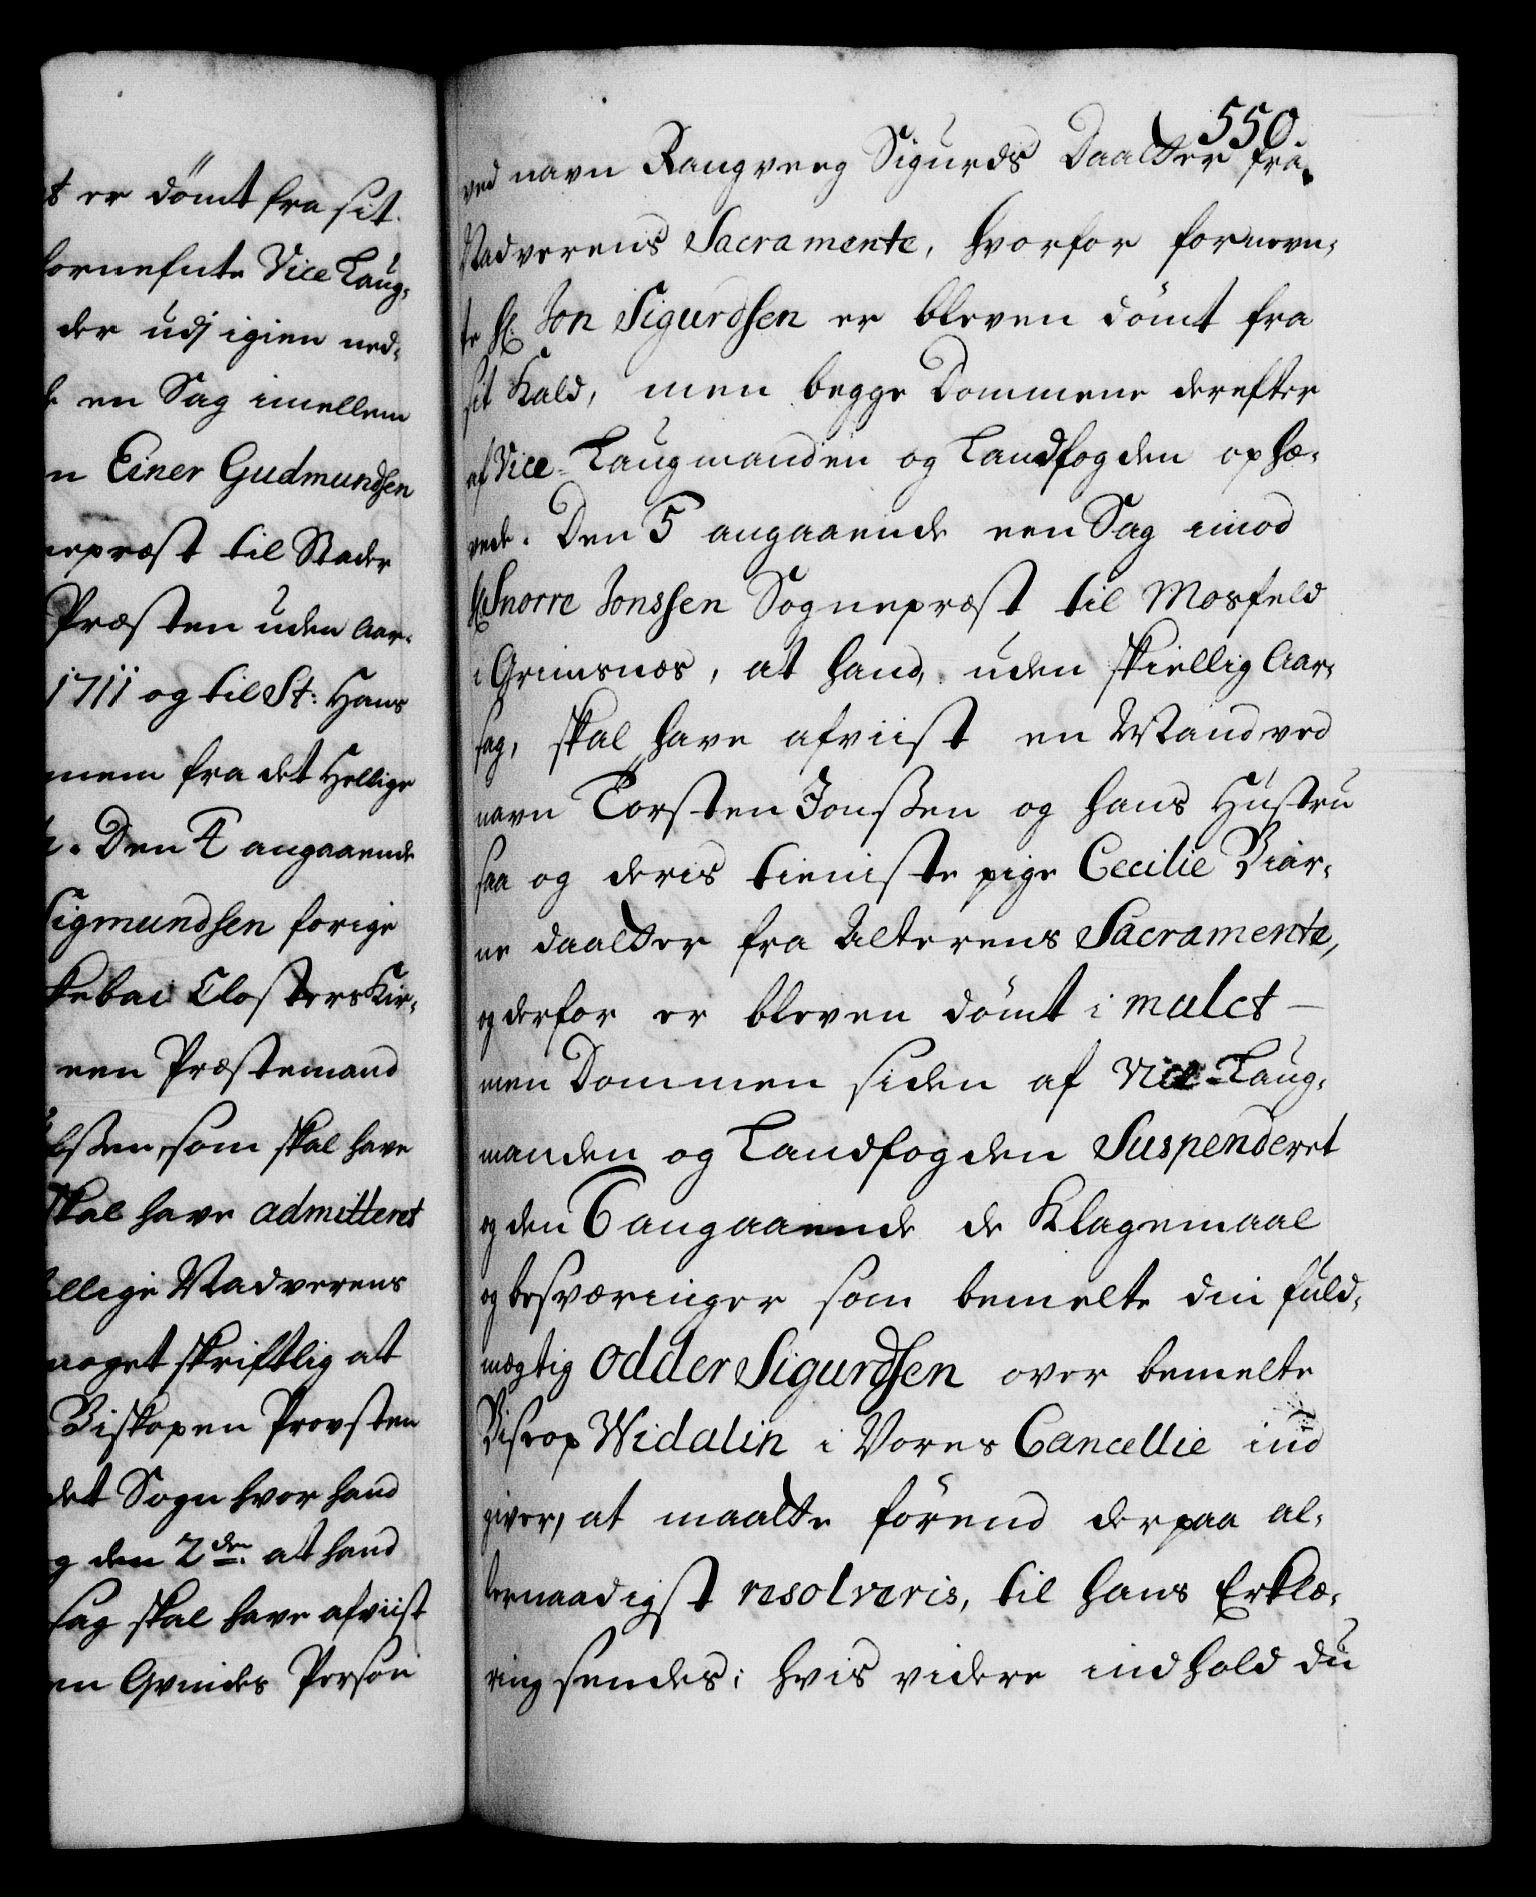 er dömt fra sit
fornefnte Vice Laug-
der udj igien ned-
en Sag imellem
Einer Gudmundsen
nepræst til Stader
Præsten uden Aar-
1711 og til St: Hans
fra det Hellige
Den 4 angaaende
Sigmundsen forige
Closters Kir-
een Præstemand
som skal have
skal have admitteret
ellige Nadverens
noget skriftlig at
Biskopen Provsten
det Sogn hvor hand
den 2den at hand
sag skal have afviist
en Qvindes Person
550
ved navn Rangveeg Sigurds Daatter fra
Nadverens Sacramente, hvorfor fornevn-
te Hr. Jon Sigurdsen er bleven dömt fra
sit Kald, men begge Dommene derefter
af Vice-Laugmanden og Landfogden ophæ-
vede. Den 5 angaaende een Sag imod
Hr. Snorre Jonssen Sognepræst til Mosfeld
i Grimsnæs, at hand, uden skiellig Aar-
sag, skal have afviist en Mand ved
navn Torsten Jonssen og hans Hustru
saa og deris tieniste pige Cecilie Biar-
ne daatter fra Alterens Sacramente,
og derfor er bleven dömt i mulct
men Dommen siden af Vice-Laug-
manden og Landfogden Suspenderet
og den 6 angaaende de Klagemaal
og besværinger som bemelte din fuld-
mægtig Odder Sigurdsen over bemelte
Biscop Widalin i Vores Cancellie ind
giver, at maatte förend derpaa al-
lernaadigst resolveris, til hans Erklæ-
ring sendes; hvis videre indhold du